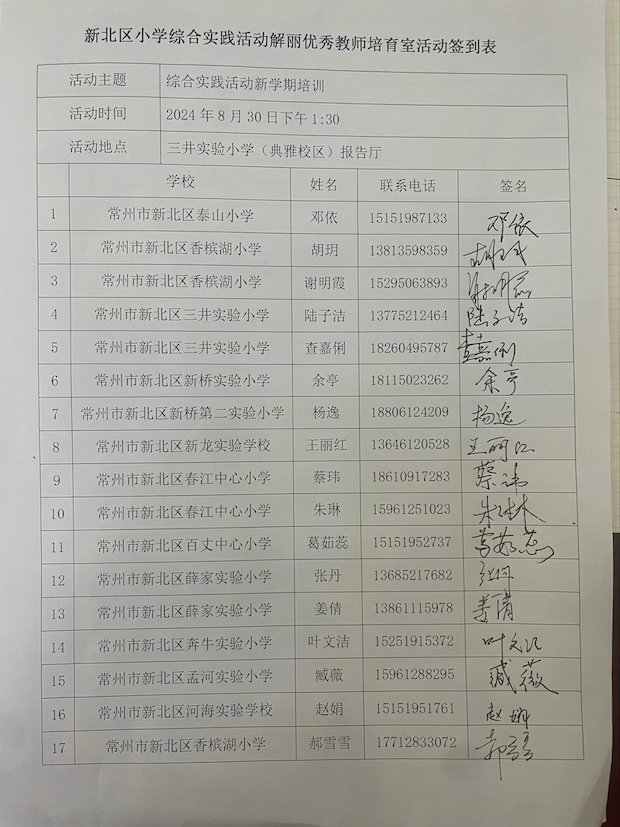 新北区小学综合实践活动解丽优秀教师培育室活动签到表
活动主题 综合实践活动新学期培训
活动时间 2024 年 8 月 30 日下午 1:30
活动地点 三井实验小学（典雅校区）报告厅
学校 姓名 联系电话 签名
1 常州市新北区泰山小学 邓依 15151987133 邓依
2 常州市新北区香槟湖小学 胡玥 13813598359 胡玥
3 常州市新北区香槟湖小学 谢明霞 15295063893 谢明霞
4 常州市新北区三井实验小学 陆子洁 13775212464 陆子洁
5 常州市新北区三井实验小学 查嘉俐 18260495787 查嘉俐
6 常州市新北区新桥实验小学 余亭 18115023262 余亭
7 常州市新北区新桥第二实验小学 杨逸 18806124209 杨逸
8 常州市新北区新龙实验学校 王丽红 13646120528 王丽红
9 常州市新北区春江中心小学 蔡玮 18610917283 蔡玮
10 常州市新北区春江中心小学 朱琳 15961251023 朱琳
11 常州市新北区百丈中心小学 葛茹蕊 15151952737 葛茹蕊
12 常州市新北区薛家实验小学 张丹 13685217682 张丹
13 常州市新北区薛家实验小学 姜倩 13861115978 姜倩
14 常州市新北区奔牛实验小学 叶文洁 15251915372 叶文洁
15 常州市新北区孟河实验小学 臧薇 15961288295 臧薇
16 常州市新北区河海实验学校 赵娟 15151951761 赵娟
17 常州市新北区香槟湖小学 郝雪雪 17712833072 郝雪雪